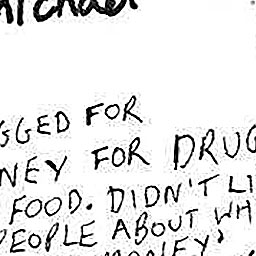 GGED FOR
NEY FOR DRUG
FOOD. DIDN'T LI
PEOPLE ABOUT WH
MONEY?